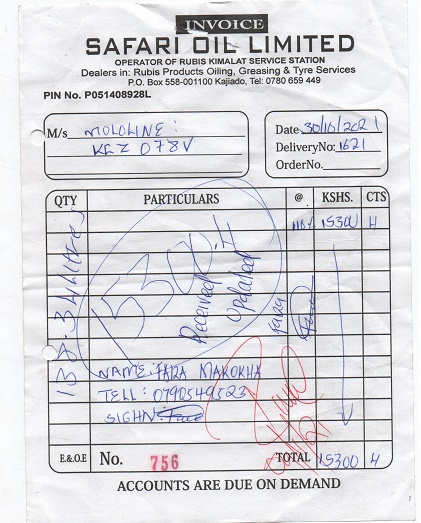 INVOICE
SAFARI OIL LIMITED
OPERATOR OF RUBIS KIMALAT SERVICE STATION
Dealers in: Rubis Products Oiling, Greasing & Tyre Services
P.O. Box 558-001100 Kajiado, Tel: 0780 659 449
PIN No. P051408928L
M/s MOLOLINE :
KCZ 078V
Date 30/10/2021
DeliveryNo: 1621
OrderNo.
QTY PARTICULARS @ KSHS. CTS
15300 4
15300.4
Received
Updated
Fara
NAME: FARA MAKOKHA
TELL: 0790549523
SIGHN:
E.&O.E No. 756 TOTAL 15300 4
ACCOUNTS ARE DUE ON DEMAND